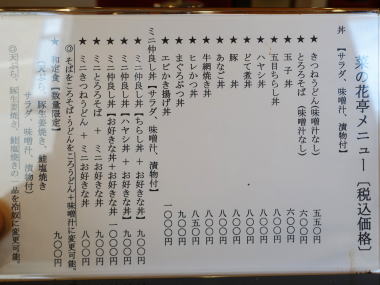 菜の花亭メニュー【税込価格】
丼【サラダ、味噌汁、漬物付】
きつねうどん(味噌汁なし) 五五〇円
とろろそば(味噌汁なし) 六〇〇円
★ 玉子丼 六〇〇円
★ ハヤシ丼 八〇〇円
★ 五目ちらし丼 八〇〇円
★ どて煮丼 八〇〇円
★ 豚丼 八〇〇円
★ あなご丼
★ 牛網焼き丼
★ ヒレかつ丼
★ まぐろぶつ丼
★ エビかき揚げ丼 一〇〇〇円
ミニ仲良し丼【サラダ、味噌汁、漬物付】
★ ミニ仲良し丼【ちらし丼+お好きな丼】 九〇〇円
★ ミニ仲良し丼【ハヤシ丼+お好きな丼】 一〇〇〇円
★ ミニ仲良し丼【お好きな丼+お好きな丼】
ミニとろろそば + ミニお好きな丼 八〇〇円
ミニきつねうどん + ミニお好きな丼 八〇〇円
◎そばをころそばうどんをころうどん+味噌汁に変更可能。
★ 和定食【数量限定】 九〇〇円
(天ぷら、豚生姜焼き、鮭塩焼き
サラダ、味噌汁、漬物付)
◎天ぷら、豚生姜焼き、鮭塩焼きの一品を冷奴に変更可能。